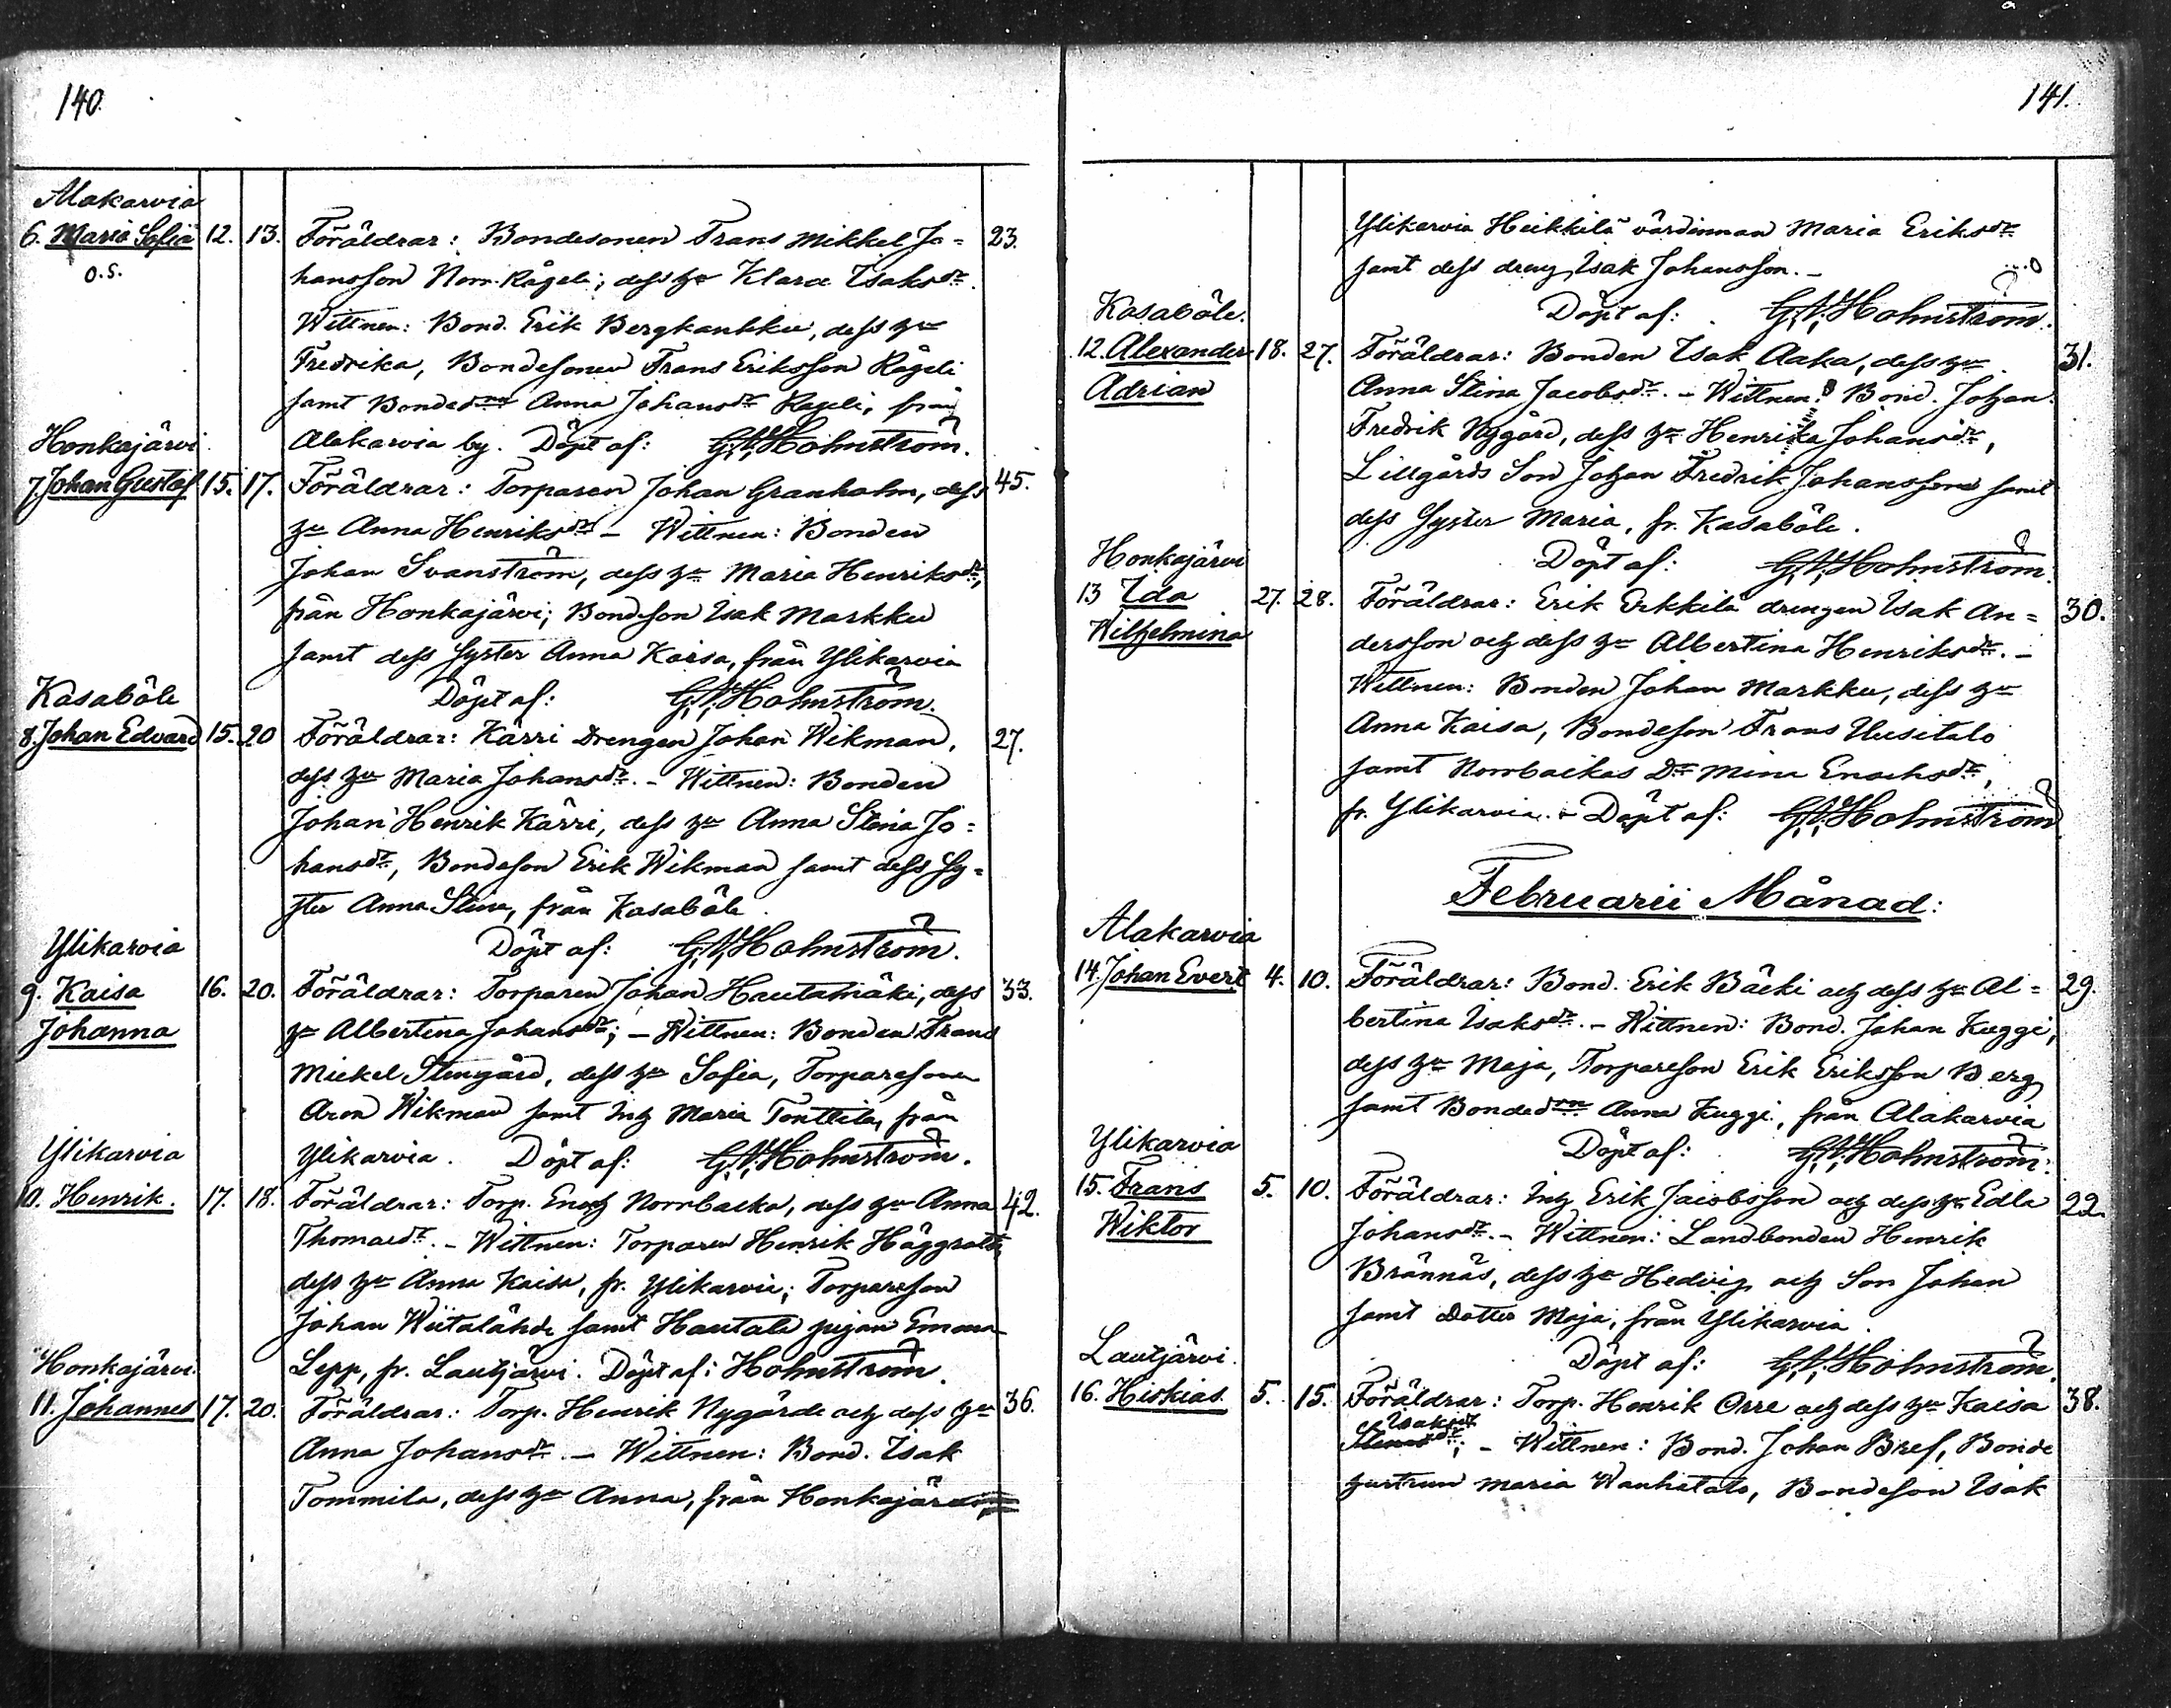 140.
Alakarvia
6. Maria Sofia 12. 13. Föräldrar: Bondesonen Frans Mikkel Jo= 23.
o.s. hansson Norr-Rågeli; dess hu Klara Isaksdr.
Wittnen: Bond. Erik Bergkankku, dess hu
Fredrika, Bondesonen Frans Eriksson Rågeli
samt Bonded:n Anna Johansdr Rågeli, från
Honkajärvi Alakarvia by. Döpt af: G.A. Holmström.
7. Johan Gustaf 15. 17. Föräldrar: Torparen Johan Granholm, dess 45.
hu Anna Henriksdr – Wittnen: Bonden
Johan Svanström, dess hu Maria Henriksdr,
från Honkajärvi; Bondeson Isak Markku
samt dess syster Anna Kaisa, från Ylikarvia
Kasaböle Döpt af: Holmström.
8. Johan Edvard 15. 20 Föräldrar: Kärri Drengen Johan Wikman, 27.
dess hu Maria Johansdr. – Wittnen: Bonden
Johan Henrik Kärri, dess hu Anna Stina Jo=
hansdr, Bondeson Erik Wikman samt dess Sy=
ster Anna Stina, från Kasaböle.
Ylikarvia Döpt af: Holmström.
9. Kaisa 16. 20. Föräldrar: Torparen Johan Hautamäki, dess 33.
Johanna hu Albertina Johansdr; – Wittnen: Bonden Frans
Mickel Stengård, dess hu Sofia, Torpareson
Aron Wikman samt Inh Maria Tonttila, från
Ylikarvia Ylikarvia. Döpt af: Holmström.
10. Henrik. 17. 18. Föräldrar: Torp. Enoch Norrbacka, dess hu Anna 42.
Thomasdr. – Wittnen: Torparen Henrik Häggroth
dess hu Anna Kaisa, fr. Ylikarvia; Torpareson
Johan Wiitalähde samt Hautala pigan Emma
Honkajärvi. Lepp, fr. Lautjärvi. Döpt af: Holmström.
11. Johannes 17. 20. Föräldrar: Torp. Henrik Nygårde och dess hu 36.
Anna Johansdr. – Wittnen: Bond. Isak
Tommila, dess hu Anna, från Honkajärvi
141.
Ylikarvia Heikkilä värdinnan Maria Eriksdr
samt dess dreng Isak Johansson. –
Kasaböle. Döpt af: Holmström.
12. Alexander 18. 27. Föräldrar: Bonden Isak Aaka, dess hu 31.
Adrian Anna Stina Jacobsdr. – Wittnen: Bond. Johan
Fredrik Nygård, dess hu Henrika Johansdr,
Lillgårds Son Johan Fredrik Johansson samt
dess Syster Maria, fr. Kasaböle.
Honkajärvi Döpt af: Holmström.
13 Ida 27. 28. Föräldrar: Erik Erkkilä drengen Isak An= 30.
Wilhelmina dersson och dess hu Albertina Henriksdr. –
Wittnen: Bonden Johan Markku, dess hu
Anna Kaisa, Bondeson Frans Uusitalo
samt Norrbackas Dr Mina Enochsdr,
fr. Ylikarvia. – Döpt af: Holmström
Februarii Månad:
Alakarvia
14. Johan Evert 4. 10. Föräldrar: Bond. Erik Bäcki och dess hu Al= 29.
bertina Isaksdr. – Wittnen: Bond. Johan Kuggi,
dess hu Maja, Torpareson Erik Eriksson Berg
samt Bonded:n Anna Kuggi, från Alakarvia
Ylikarvia Döpt af: Holmström.
15. Frans 5. 10. Föräldrar: Inh Erik Jacobsson och dess hu Edla 22.
Wiktor Johansdr. – Wittnen: Landbonden Henrik
Brännäs, dess hu Hedvig och Son Johan
samt Dotter Maja, från Ylikarvia.
Lautjärvi. Döpt af: Holmström.
16. Hiskias. 5. 15. Föräldrar: Torp. Henrik Orre och dess hu Kaisa 38.
Isaksdr; – Wittnen: Bond. Johan Bref, Bonde
hustrun Maria Wanhatalo, Bondeson Isak